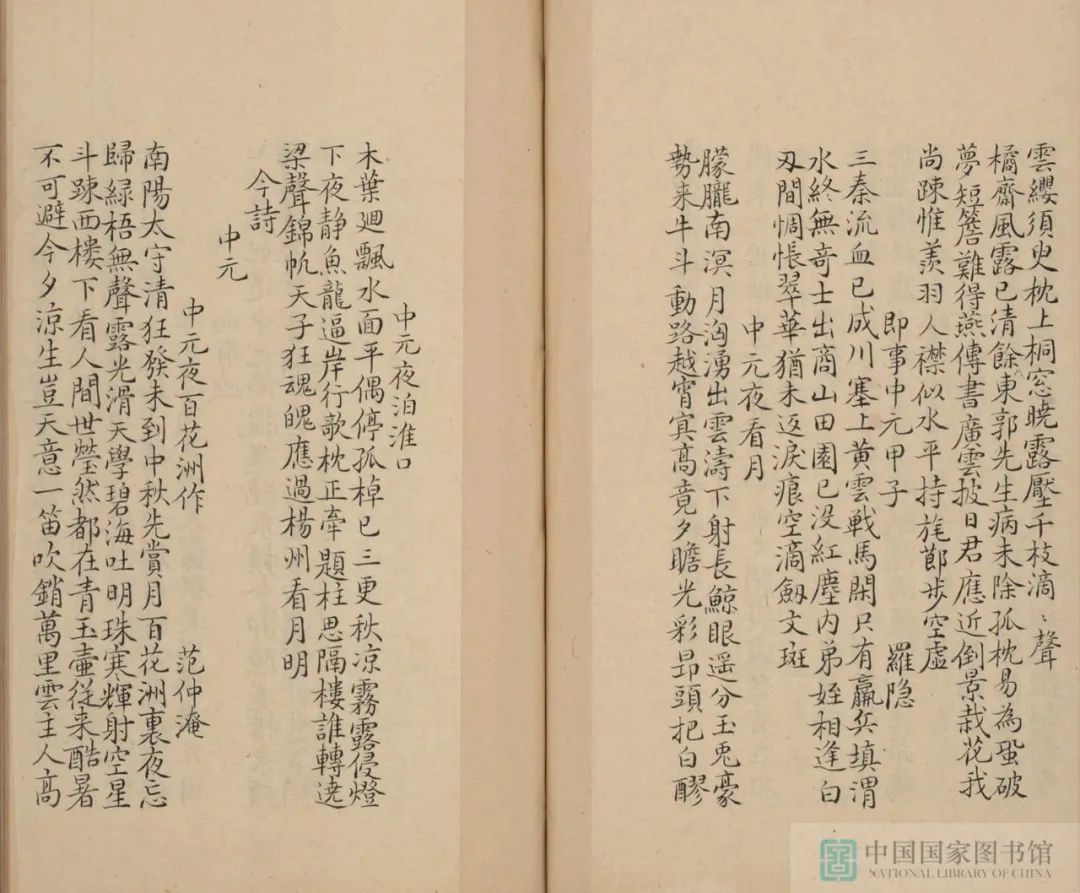 雲纓須臾枕上桐窓曉露壓千枝滴〻聲
橘齋風露已清餘東郭先生病未除孤枕易為蛩破
夢短簷難得燕傳書廣雲披日君應近倒景栽花我
尚踈惟羡羽人襟似水平持旄莭步空虛
即事中元甲子 羅隐
三秦流血已成川塞上黄雲戰馬閑只有羸兵填渭
水終無竒士出商山田園已没紅塵内弟姪相逢白
刃間惆悵翠華猶未返淚痕空滴劔文斑
中元夜看月
朦朧南溟月洶湧出雲濤下射長鯨眼遥分玉兎豪
勢来牛斗動路越宵㝠髙竟夕瞻光彩昂頭把白醪
中元夜泊淮口
木葉廻飄水面平偶停孤棹已三更秋凉霧露侵燈
下夜静魚龍逼岸行歌枕正牽題柱思隔樓誰轉遶
梁聲錦帆天子狂魂魄應過楊州看月明
今詩
中元
中元夜百花洲作 范仲淹
南陽太守清狂發未到中秋先賞月百花洲裏夜忘
歸緑梧無聲露光滑天學碧海吐明珠寒輝射空星
斗踈西楼下看人間世瑩然都在青玉壷従来酷暑
不可避今夕涼生豈天意一笛吹銷萬里雲主人髙
中国国家图书馆
NATIONAL LIBRARY OF CHINA